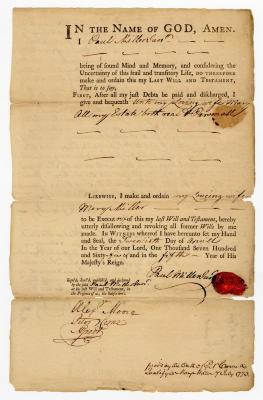 IN THE NAME OF GOD, AMEN.
I Paul Miller Junr
being of sound Mind and Memory, and considering the
Uncertainty of this frail and transitory Life, DO THEREFORE
make and ordain this my LAST WILL AND TESTAMENT,
That is to say,
FIRST, After all my just Debts be paid and discharged, I
give and bequeath Unto my Loving wife Mary
All my Estate both real &
LIKEWISE, I make and ordain my Loveing wife
Mary Miller
to be EXECU of this my last Will and Testament, hereby
utterly disallowing and revoking all former Wills by me
made. IN WITNESS whereof I have hereunto set my Hand
and Seal, the Twentieth Day of April
In the Year of our Lord, One Thousand Seven Hundred
and Sixty and in the fifth Year of His
Majesty's Reign.
Paul Miller Junr
by the said Paul Miller Junr
as his last Will and Testament, in
the Presence of us, the Subscribers,
Alexr Moore
July 1773